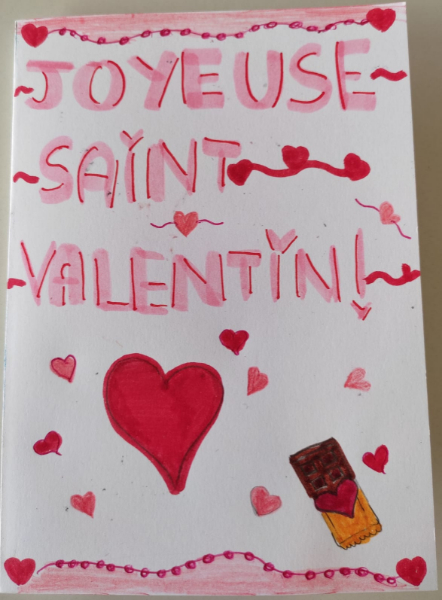 JOYEUSE
SAINT
VALENTIN!